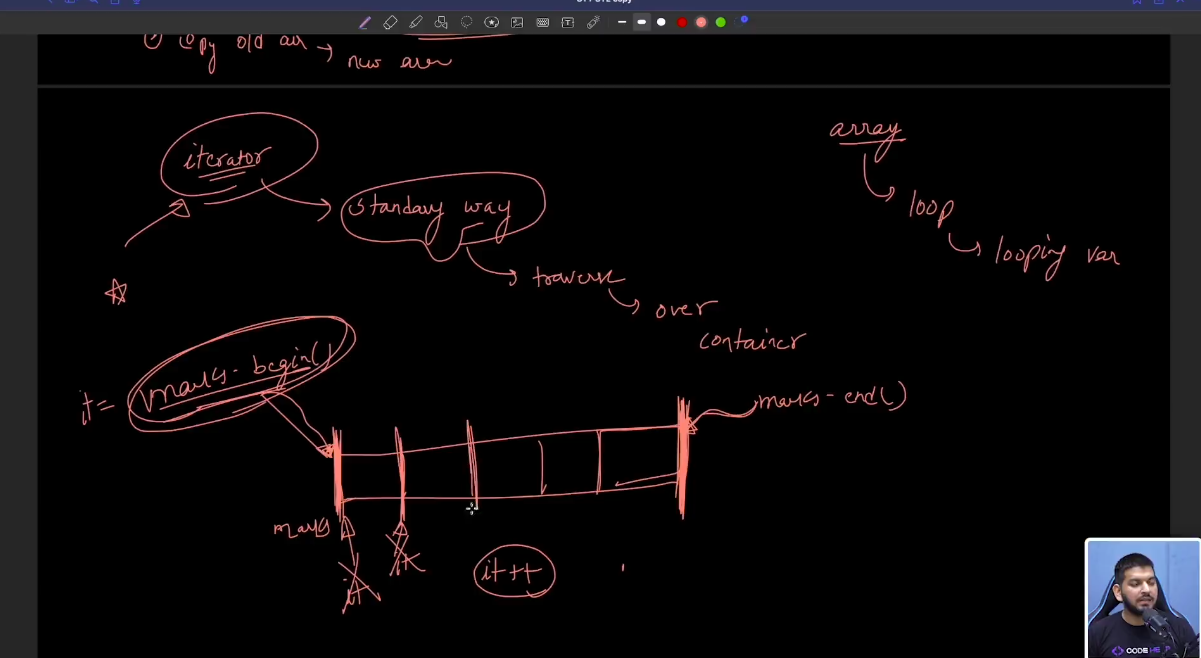 copy old arr → new arr
iterator
standary way
traverse
over
container
array
loop
looping var
it = marks.begin()
marks.end()
marks
it
it
it++
CODE HELP